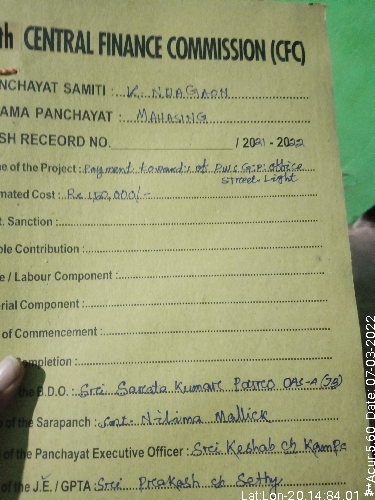 th CENTRAL FINANCE COMMISSION (CFC)
NCHAYAT SAMITI : K. NUAGAON
AMA PANCHAYAT : MAHASING
SH RECEORD NO. / 2021 - 2022
e of the Project : Payment towards of PWS G.P. office
Street Light
mated Cost : Rs 1,50,000/-
t. Sanction :
ble Contribution :
e / Labour Component :
erial Component :
of Commencement :
ompletion :
the B.D.O. : Sri Sarata Kumar Patro OAS-A (JB)
of the Sarapanch : Smt. Nilima Mallick
of the Panchayat Executive Officer : Sri Keshab ch
of the J.E. / GPTA : Sri Prakash ch Sethy
Lat:Lon-20.14:84.01
**Acu: 5.60 Date: 07-03-2022